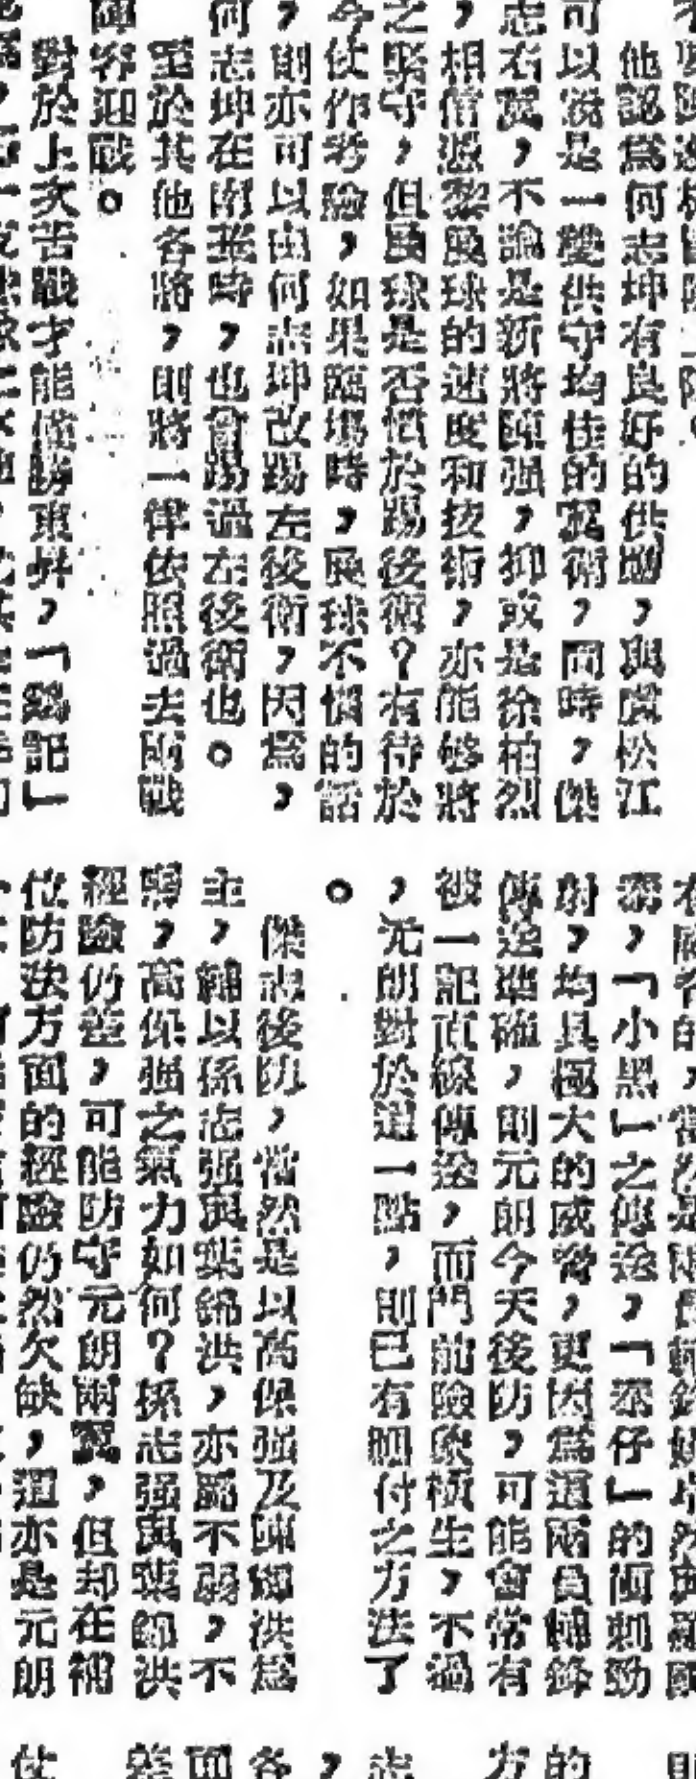 他認爲何志坤有良好的供應,與盧松江
可以說是一雙供守均佳的翼衛,同時,傑
志右翼,不論是新將陳强,抑或是徐柏烈
,相信憑黎展球的速度和技術,亦能够將
之緊守,但展球是否慣於踢後衛?有待於
今仗作考驗,如果臨塲時,展球不慣的話
,則亦可以由何志坤改踢左後衛,因爲,
何志坤在南華時,也曾踢過左後衛也。
至於其他各將,則將一律依照過去兩戰
陣容迎戰。
對於上次苦戰才能僅勝東昇,「鷄記」
,「小黑」之傳送,「泰仔」的衝刺勁
射,均具極大的威脅,更因爲這兩員輔鋒
傳送準確,則元朗今天後防,可能會常有
被一記直線傳送,而門前險象橫生,不過
,元朗對於這一點,則已有應付之方法了
。
傑志後防,當然是以高保强及陳錦洪爲
主,輔以孫志强與葉錦洪,亦屬不弱,不
高保强之氣力如何?孫志强與葉錦洪
經驗仍差,可能防守元朗兩翼,但却在補
位防決方面的經驗仍然欠缺,這亦是元朗